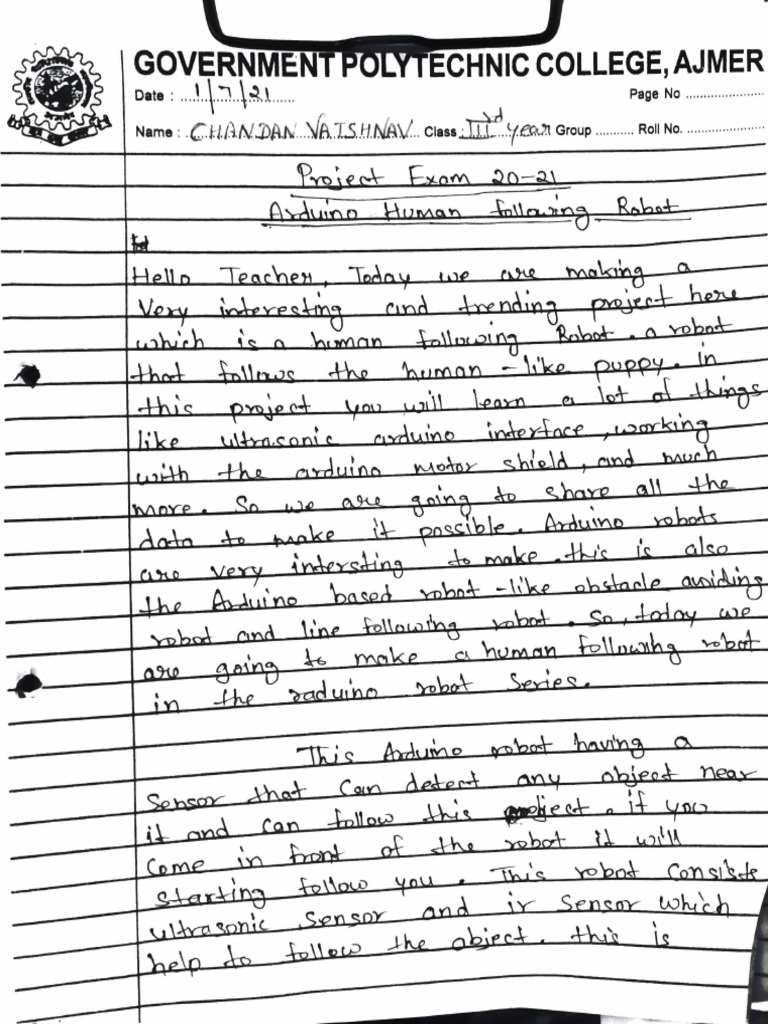 GOVERNMENT POLYTECHNIC COLLEGE, AJMER
Date : 1/7/21 Page No
Name : CHANDAN VAISHNAV Class : IIIrd year Group Roll No.
Project Exam 20-21
Arduino Human following Robot
Hello Teacher, Today we are making a
Very interesting and trending project here
which is a human following Robot. a robot
that follows the human - like puppy. in
this project you will learn a lot of things
like ultrasonic arduino interface, working
with the arduino motor shield, and much
more. So we are going to share all the
data to make it possible. Arduino robots
are very intersting to make. this is also
the Arduino based robot - like obstacle avoiding
robot and line following robot. So, today we
are going to make a human following robot
in the raduino robot Series.
This Arduino robot having a
Sensor that Can detect any object near
it and can follow this object. if you
Come in front of the robot it will
starting follow you. This robot Consists
ultrasonic sensor and ir Sensor which
help to follow the object. this is